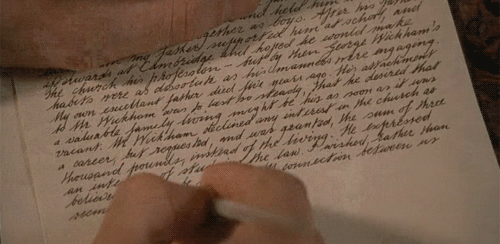 and held him in
together as boys. After his father
my father supported him at school, and
afterwards at Cambridge and hoped he would make
the church his profession - but by then George Wickham's
habits were as dissolute as his manners were engaging.
My own excellent father died five years ago. His attachment
to Mr Wickham was to last so steady, that he desired that
a valuable family living might be his as soon as it was
vacant. Mr Wickham declined any interest in the church as
a career, but requested, and was granted, the sum of three
thousand pounds, instead of the living. He expressed
an the law. I wished, rather than
connection between us